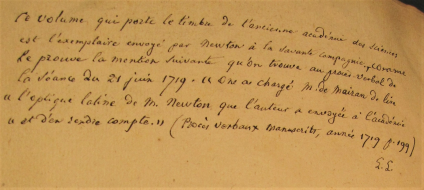 Ce volume, qui porte le timbre de l'ancienne académie des sciences
est l'exemplaire envoyé par Newton à la savante compagnie, comme
le prouve la mention suivante qu'on trouve au procès-verbal de
la séance du 21 juin 1719 - « On a chargé M. de Mairan de lire
« l'optique latine de M. Newton que l'auteur a envoyée à l'académie
« et d'en rendre compte. » (Procès verbaux manuscrits, année 1719 p. 199)